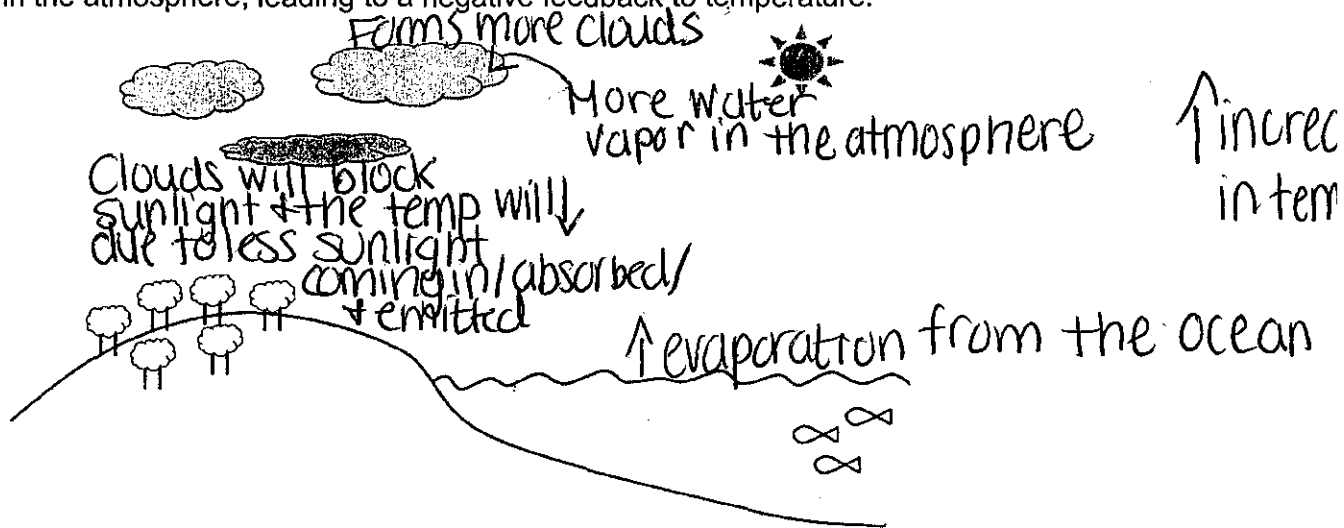 in the atmosphere, leading to a negative feedback to temperature.
Forms more clouds
More water
vapor in the atmosphere
↑ increa
in tem
Clouds will block
sunlight + the temp will ↓
due to less sunlight
coming in/absorbed/
+ emitted
↑ evaporation from the ocean